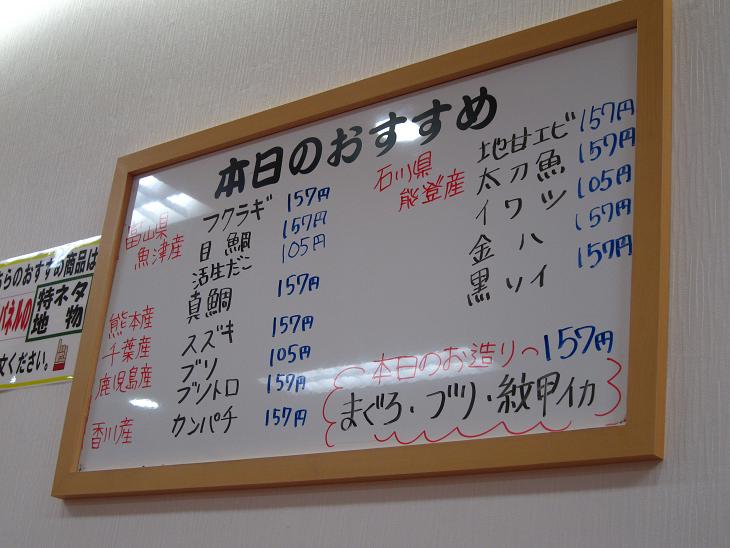 本日のおすすめ
富山県
魚津産
フクラギ 157円
目鯛 157円
活生だこ 105円
真鯛 157円
熊本産
スズキ 157円
千葉産
ブリ 105円
鹿児島産
ブリトロ 157円
香川産
カンパチ 157円
石川県
能登産
地甘エビ 157円
太刀魚 157円
イワシ 105円
金ハ 157円
黒ソイ 157円
本日のお造り 157円
まぐろ・ブリ・紋甲イカ
ちらのおすすめ商品は
パネルの 特ネタ
地物
文ください。